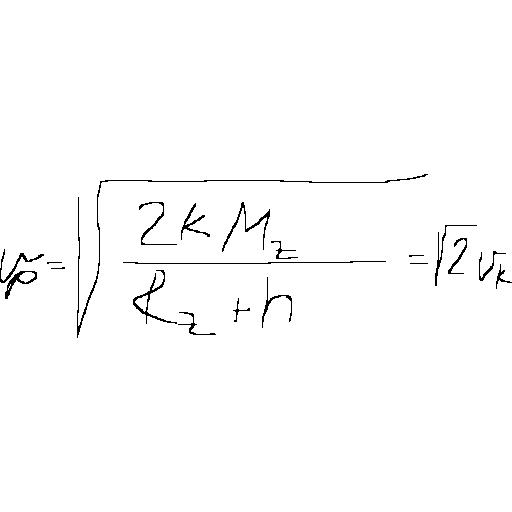 v_p = \sqrt{\frac{2 k M_z}{R_z + h}} = \sqrt{2} v_k